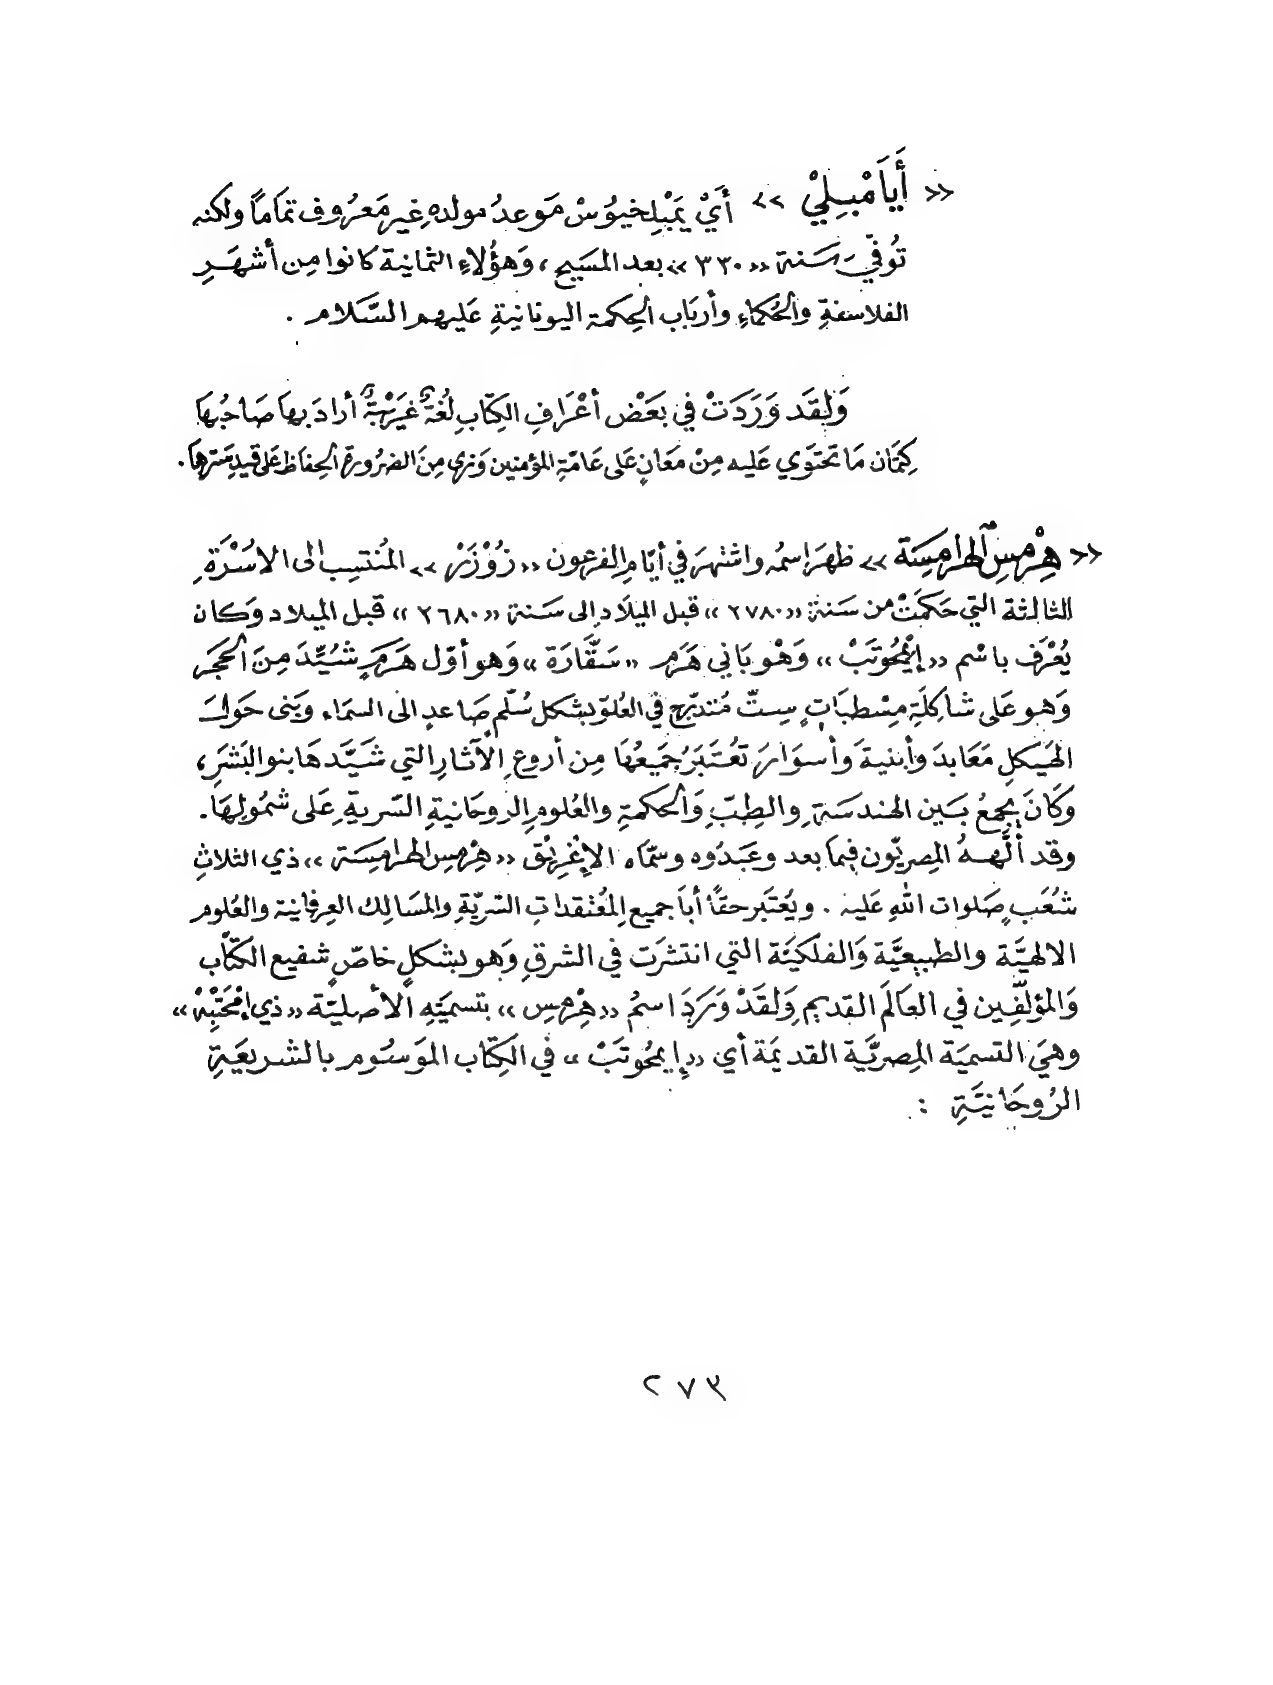 « أَيَامْبِلِيْ » أَيْ يَمْبْلِخيُوسْ مَوعدُ مولدهِ غير مَعرُوف تمَامًا ولكنه
تُوفّيَ سَنة «٣٣٠» بعد المسَيح ، وَهؤُلاءِ الثمانية كانوا مِن أشهَرِ
الفلاسفةِ والحُكماءِ وأربَاب الحِكمة اليونانيةِ عَليهم السَّلام .
وَلِقَد وَرَدَتْ في بَعَض أعْرَافِ الكِتابِ لُغَةٌ غَريَبَةٌ أرادَ بهَا صَاحبُها
كِتمَان مَا تحتَوَي عَليه مِنْ مَعَانٍ عَلى عَامّةِ المؤمنين وَنرى مِنَ الضرُورة الحِفاظ عَلى قيدِ سَترهَا .
« هِرْمِسِ الهَرامِسَة » ظهَرَ إسمُه واشتهرَ في أيّام الفِرعون « زُوْزَرْ » المُنتسِب الى الاسُرَة
الثالثة التي حَكمَتْ من سَنة «٢٧٨٠» قبل الميلَاد إلى سَنة «٢٦٨٠» قبل الميلاد وَكان
يُعْرَف باسْم « إيْمحُوتَبْ » وَهْو بَاني هَرَم « سَقَّارَة » وَهو أوّل هَرَمٍ شُيِّدَ مِنَ الحجَر
وَهو عَلى شاكِلَةِ مِسْطبَاتٍ سِتّ مُتدرّج في العُلوّ بشكل سُلّمٍ صَاعدٍ الى السمَاء وبَنى حَولَ
الهَيكلِ مَعَابدَ وأبنيةَ وَأسوَارَ تعُتَبَرُ جَميعُهَا مِن أروعِ الآثارِ التي شَيَّدهَا بنو البَشَرِ ،
وكَانَ يجمعُ بَين الهندسَةِ والطِبِّ وَالحكمَةِ والعُلومِ الروحَانيةِ السّريةِ عَلى شمُولِهَا .
وقد ألّههُ المصِريّون فيما بعد وعَبَدُوه وسمّاه الإغْريْق « هِرْمِسِ الهرامِسَة » ذي الثلاثِ
شُعَبٍ صَلوات اللهِ عَليه . ويُعتَبَر حقاً أبَا جميع المُعْتقداتِ السّريّةِ والمسَالِك العِرفانية والعُلوم
الالهيَّة والطبيعيَّة وَالفلكيَّة التي انتشرَت في الشرقِ وَهو بشكلٍ خاصٍّ شفيع الكتّاب
وَالمؤلّفِين في العَالَم القديم وَلقَدْ وَرَدَ اسمُ « هِرْمِس » بتسميَتِه الأصليّة « ذي إمْحَتِبْهْ »
وهيَ التسميَة المِصريَّة القديمَة أي « إيمحُوتَبْ » في الكِتاب الموَسُوم بالشريعَةِ
الرُوحَانيّةِ :
٢٧٣